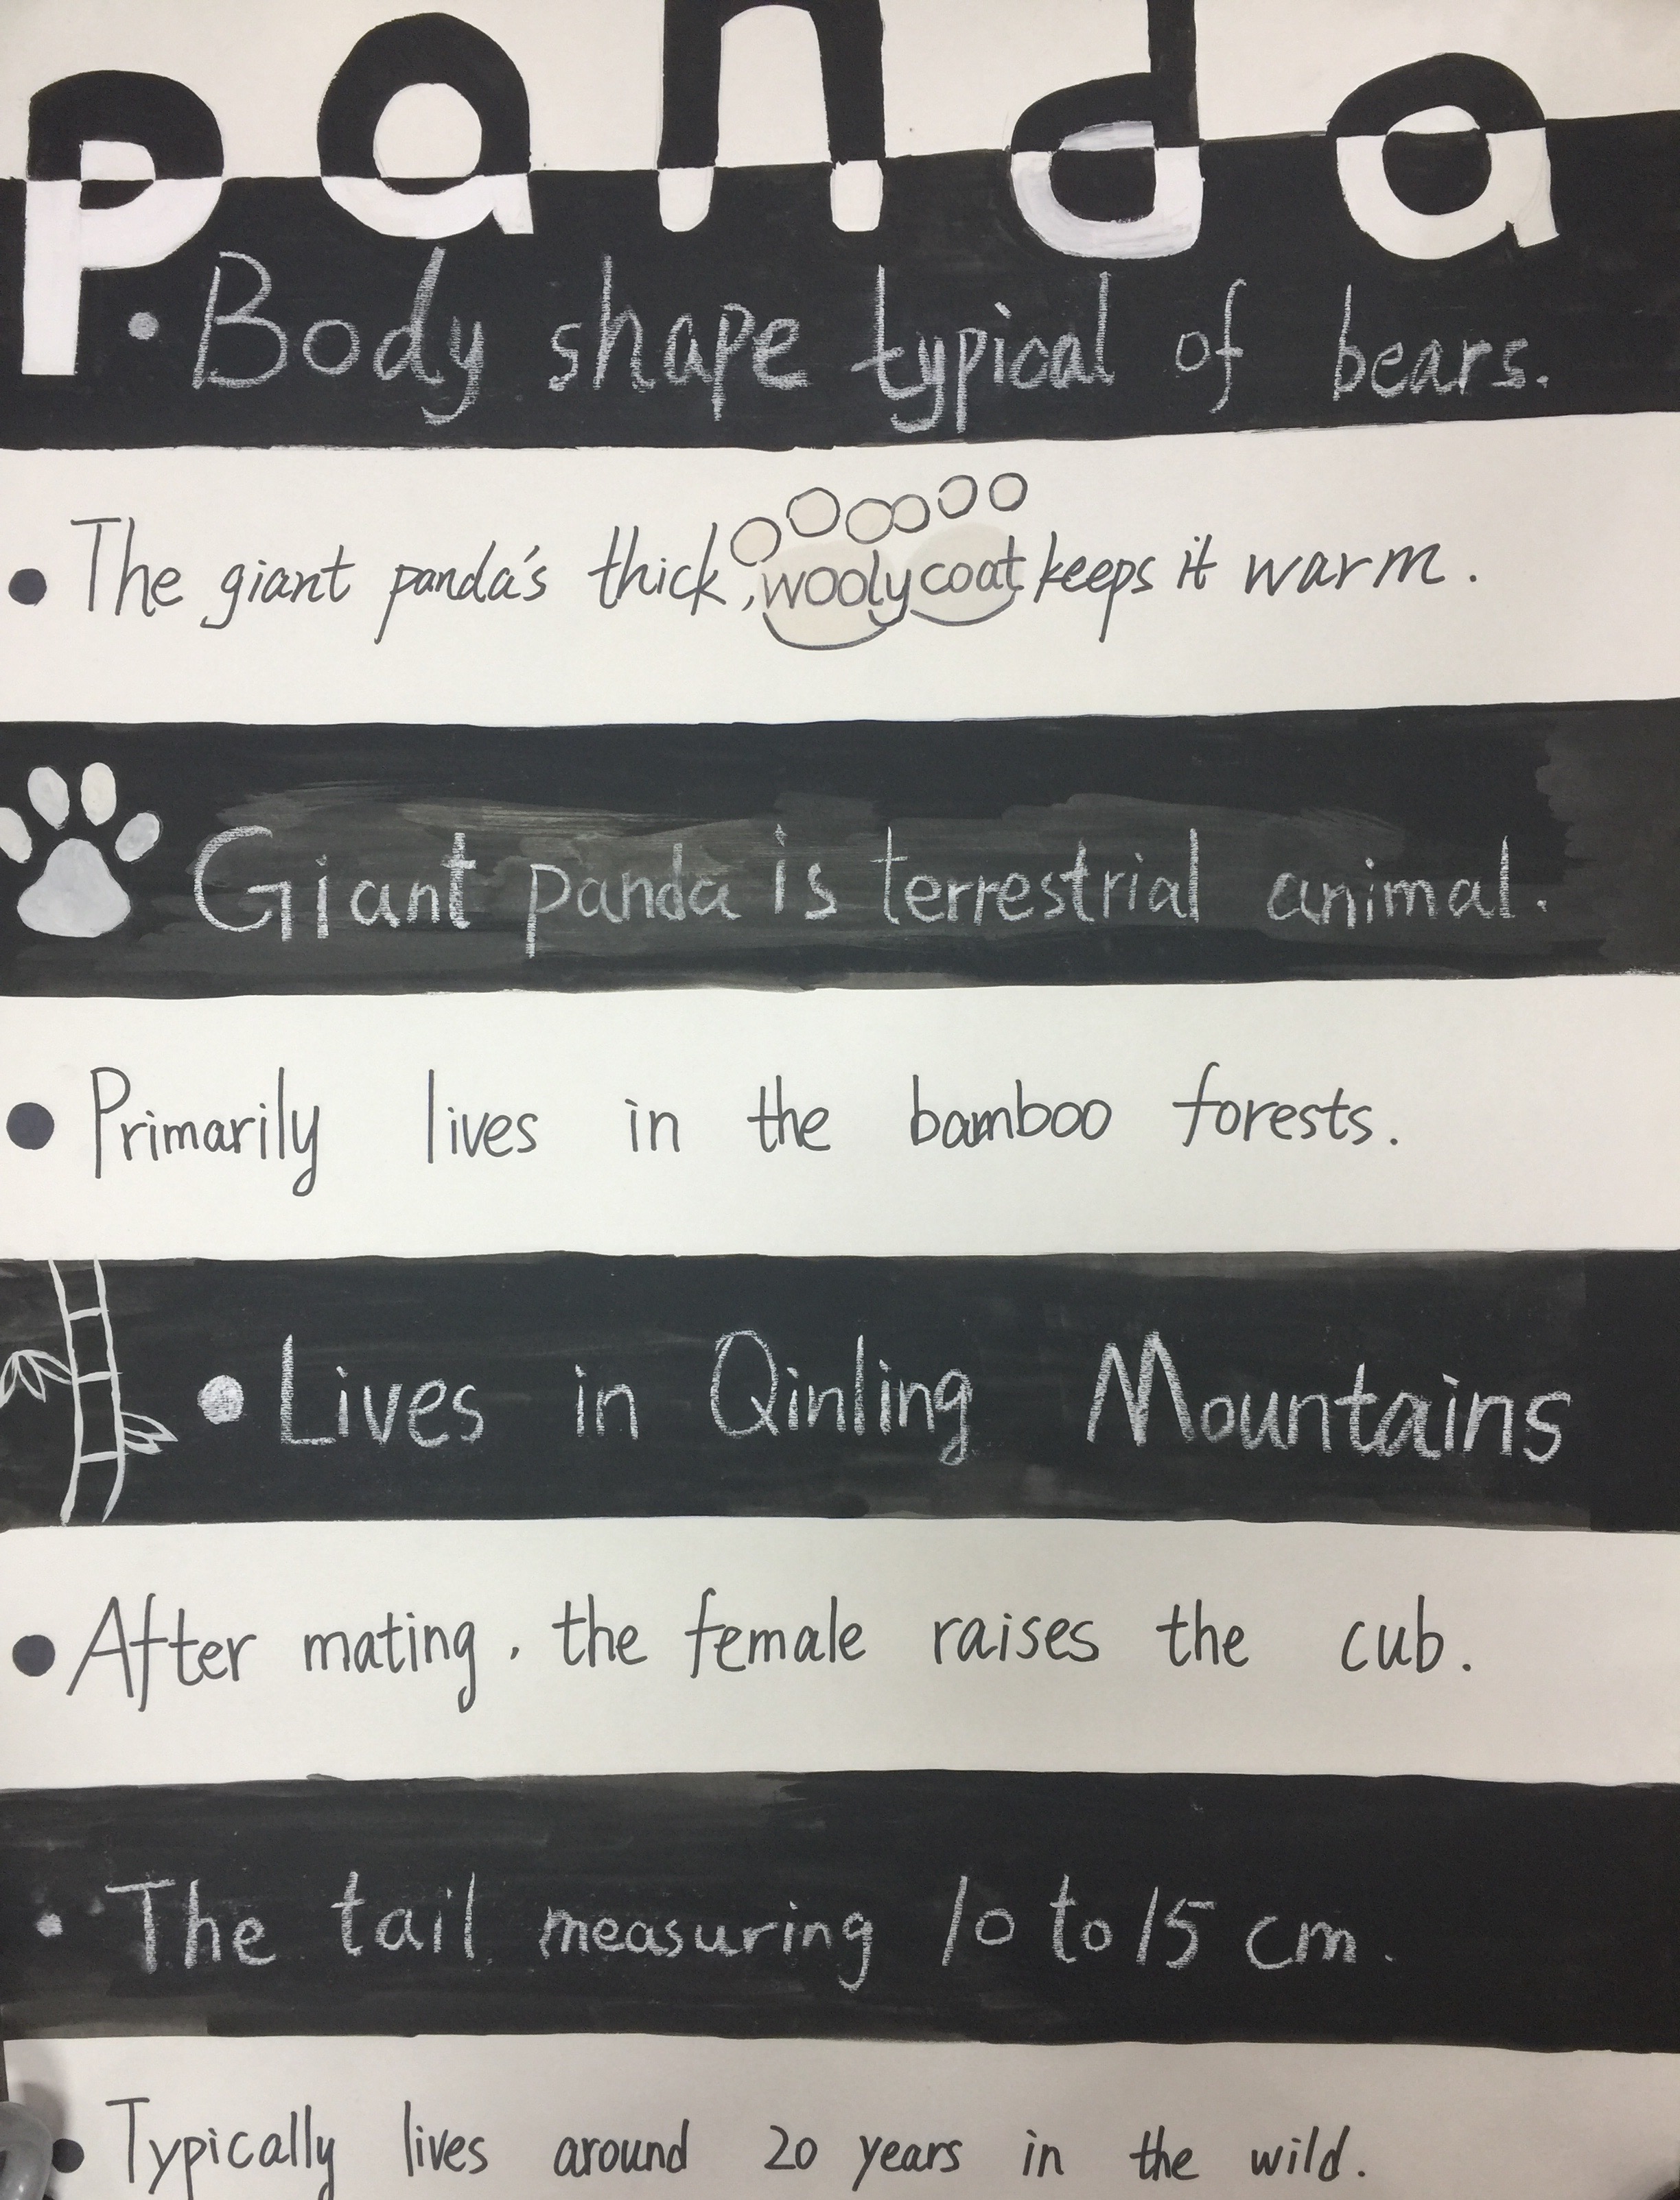 panda
• Body shape typical of bears.
• The giant panda's thick, wooly coat keeps it warm.
Giant panda is terrestrial animal.
• Primarily lives in the bamboo forests.
• Lives in Qinling Mountains
• After mating, the female raises the cub.
• The tail measuring 10 to 15 cm.
• Typically lives around 20 years in the wild.